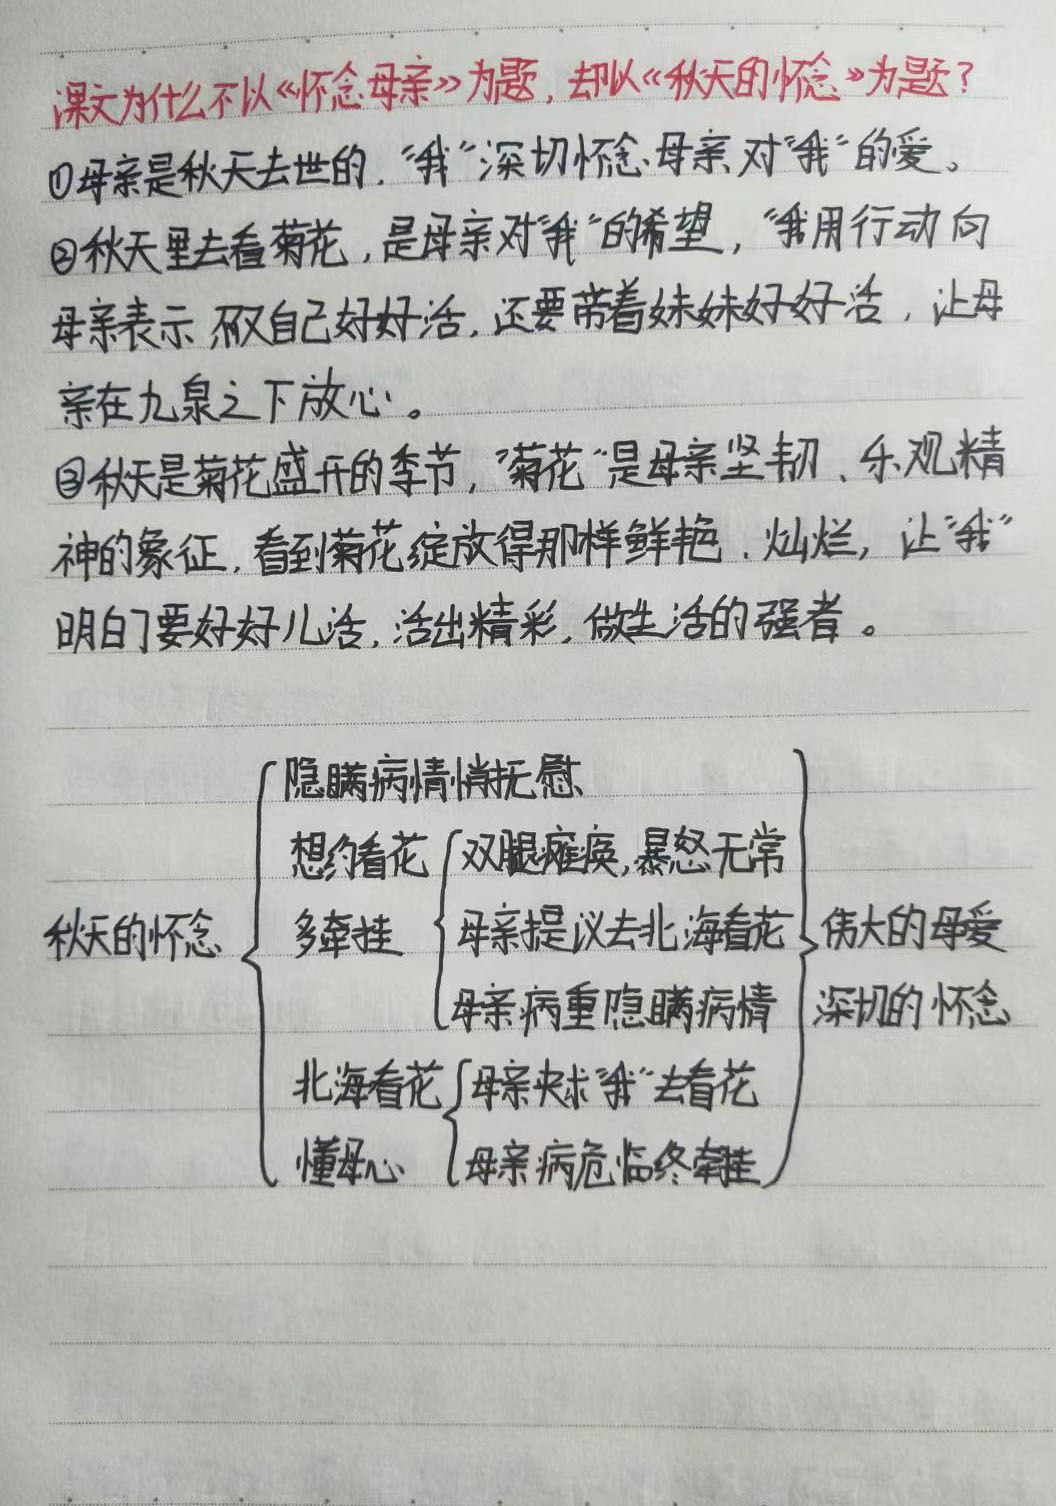 课文为什么不以《怀念母亲》为题，却以《秋天的怀念》为题？
①母亲是秋天去世的，“我”深切怀念母亲对“我”的爱。
②秋天里去看菊花，是母亲对“我”的希望，“我用行动向
母亲表示不仅自己好好活，还要带着妹妹好好活，让母
亲在九泉之下放心。
③秋天是菊花盛开的季节，“菊花”是母亲坚韧、乐观精
神的象征，看到菊花绽放得那样鲜艳、灿烂，让“我”
明白了要好好儿活，活出精彩，做生活的强者。
隐瞒病情悄抚慰
想约看花
双腿瘫痪，暴怒无常
秋天的怀念
多牵挂
母亲提议去北海看花
伟大的母爱
母亲病重隐瞒病情
深切的怀念
北海看花
母亲央求“我”去看花
懂母心
母亲病危临终牵挂